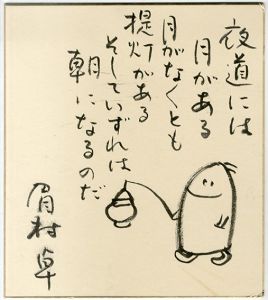 夜道には
月がある
月がなくとも
提灯がある
そしていずれは
朝になるのだ
眉村卓